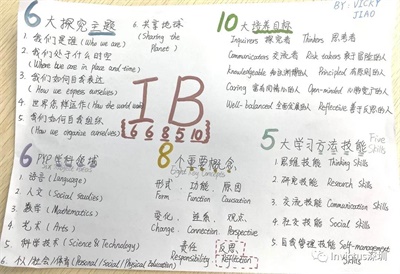 6大探究主题
1. 我们是谁 (Who we are)
2. 我们处于什么时空
(Where we are in place and time)
3. 我们如何自我表达
(How we express ourselves)
4. 世界怎样运作 (How the world works)
5. 我们如何自我组织
(How we organize ourselves)
6. 共享地球
(Sharing the
Planet)
IB
{6 6 8 5 10}
BY: VICKY
JIAO
10大培养目标
Inquirers 探究者 Thinkers 思考者
Communicators 交流者 Risk takers 敢于冒险的人
Knowledgeable 知识渊博的人 Principled 有原则的人
Caring 富有同情心的人 Open-minded
Well-balanced 全面发展的人 Reflective 善于反思的人
6 PYP学科领域
1. 语言 (Language)
2. 人文 (Social Studies)
3. 数学 (Mathematics)
4. 艺术 (Arts)
5. 科学技术 (Science & Technology)
6. 个人/社会/体育 (Personal/Social/Physical Education)
8个重要概念
Eight Key Concepts
形式、功能、原因
Form Function Causation
变化、联系、观点
Change、Connection、Perspective
责任 反思
Responsibility Reflection
5大学习方法技能 Five
Skills
1. 思维技能 Thinking Skills
2. 研究技能 Research Skills
3. 交流技能 Communication Skills
4. 社交技能 Social Skills
5. 自我管理技能 Self-management
Skills
Invictus深圳